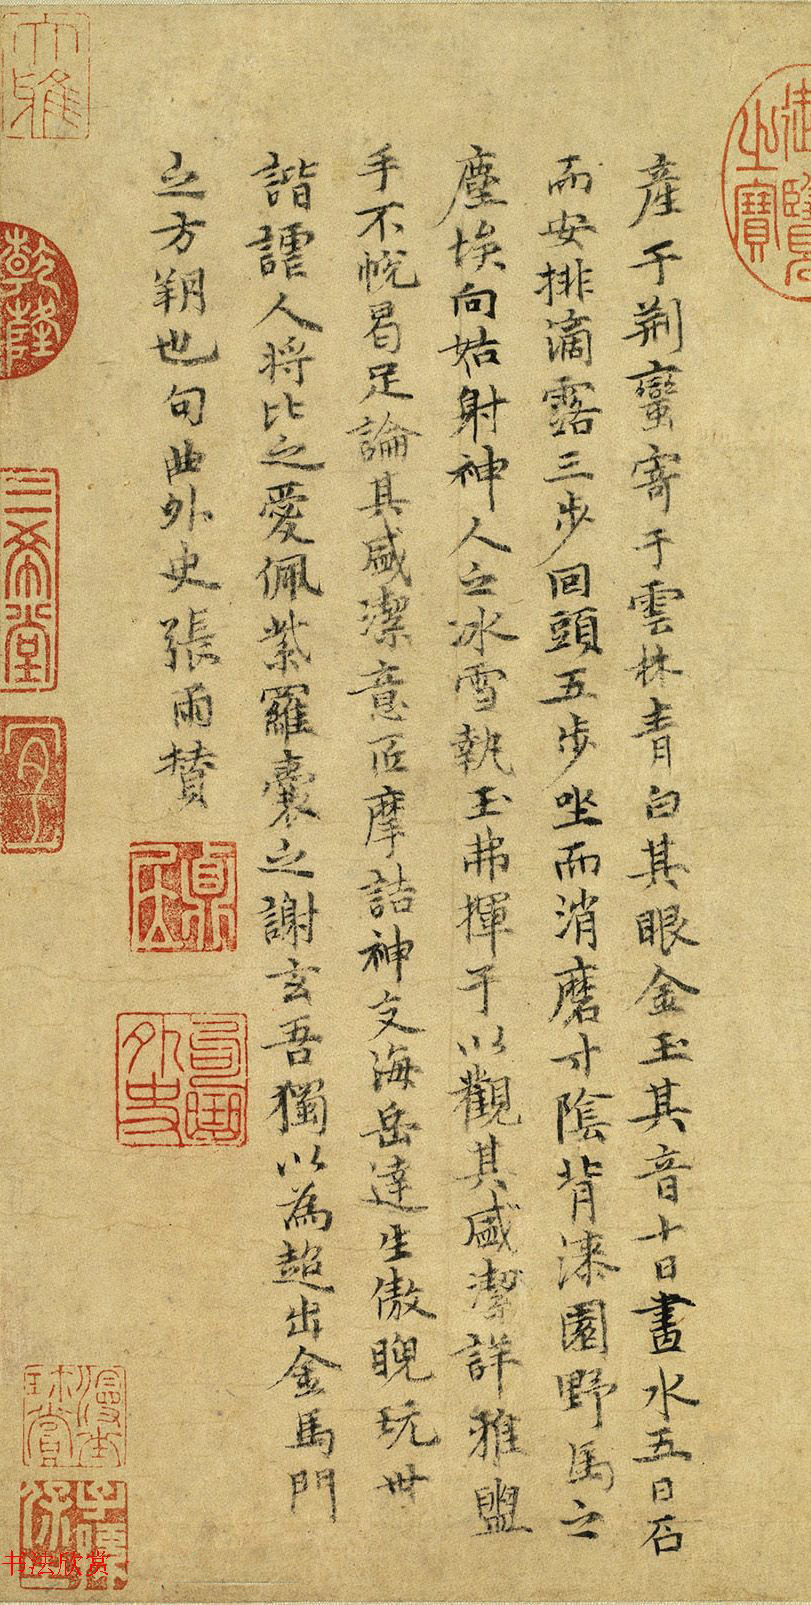 產于荊蠻寄于雲林青白其眼金玉其音十日畫水五日石
而安排滴露三步回頭五步坐而消磨寸陰背漆園野馬之
塵埃向姑射神人之冰雪執玉弗揮于以觀其盛潔詳雅盥
手不帨曷足論其盛潔意匠摩詰神交海岳達生傲睨玩世
諧謔人將比之愛佩紫羅囊之謝玄吾獨以為超出金馬門
之方朔也句曲外史張雨贊
御覽之寶
乾隆
三希堂
句曲外史
书法欣赏